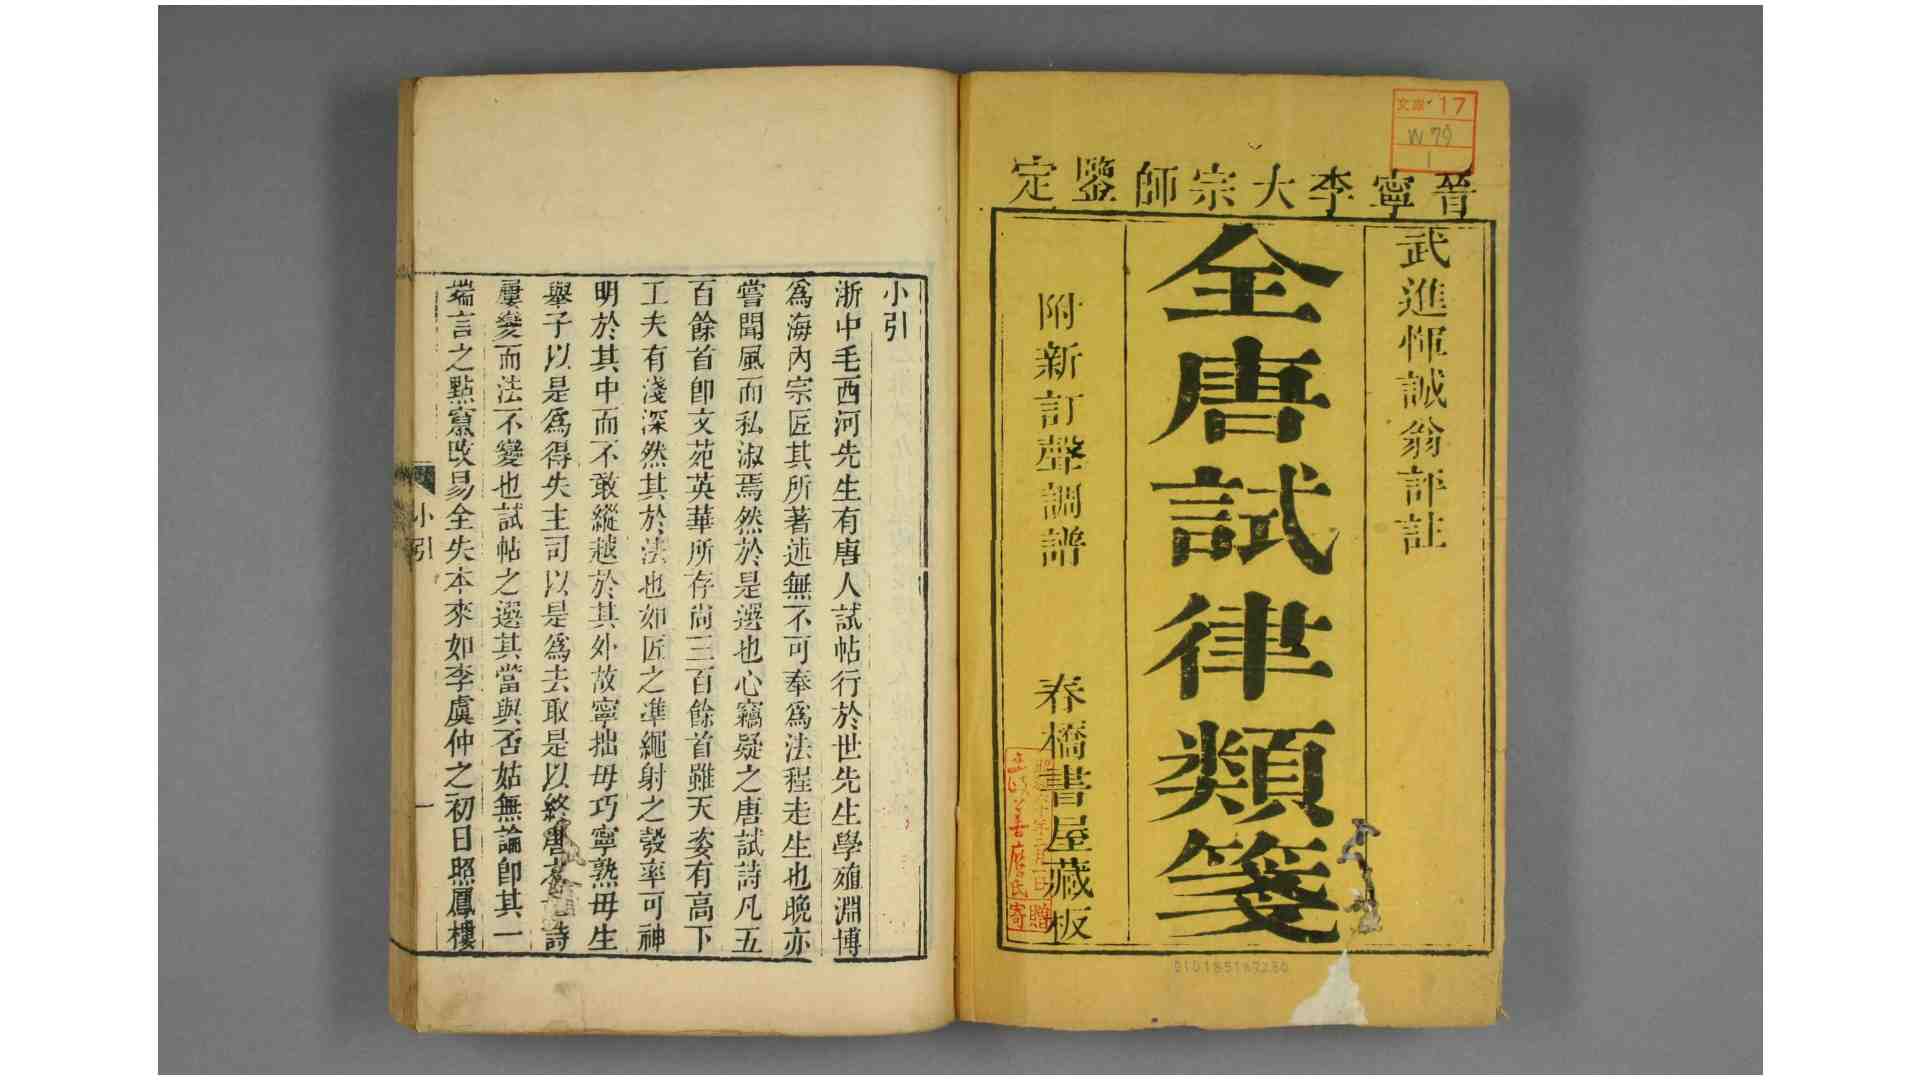 晉寧李大宗師鑒定
武進惲誠翁評註
全唐試律類箋
附新訂聲調譜　春橋書屋藏板
文庫 17
W 79
1
贈
寄
010185187230
小引
浙中毛西河先生有唐人試帖行於世先生學殖淵博
爲海內宗匠其所著述無不可奉爲法程走生也晚亦
嘗聞風而私淑焉然於是選也心竊疑之唐試詩凡五
百餘首卽文苑英華所存尚三百餘首雖天姿有高下
工夫有淺深然其於法也如匠之準繩射之彀率可神
明於其中而不敢縱越於其外故寧拙毋巧寧熟毋生
舉子以是爲得失主司以是爲去取是以終唐之詩
屢變而法不變也試帖之選其當與否姑無論卽其一
端言之點竄改易全失本來如李虞仲之初日照鳳樓
小引
一